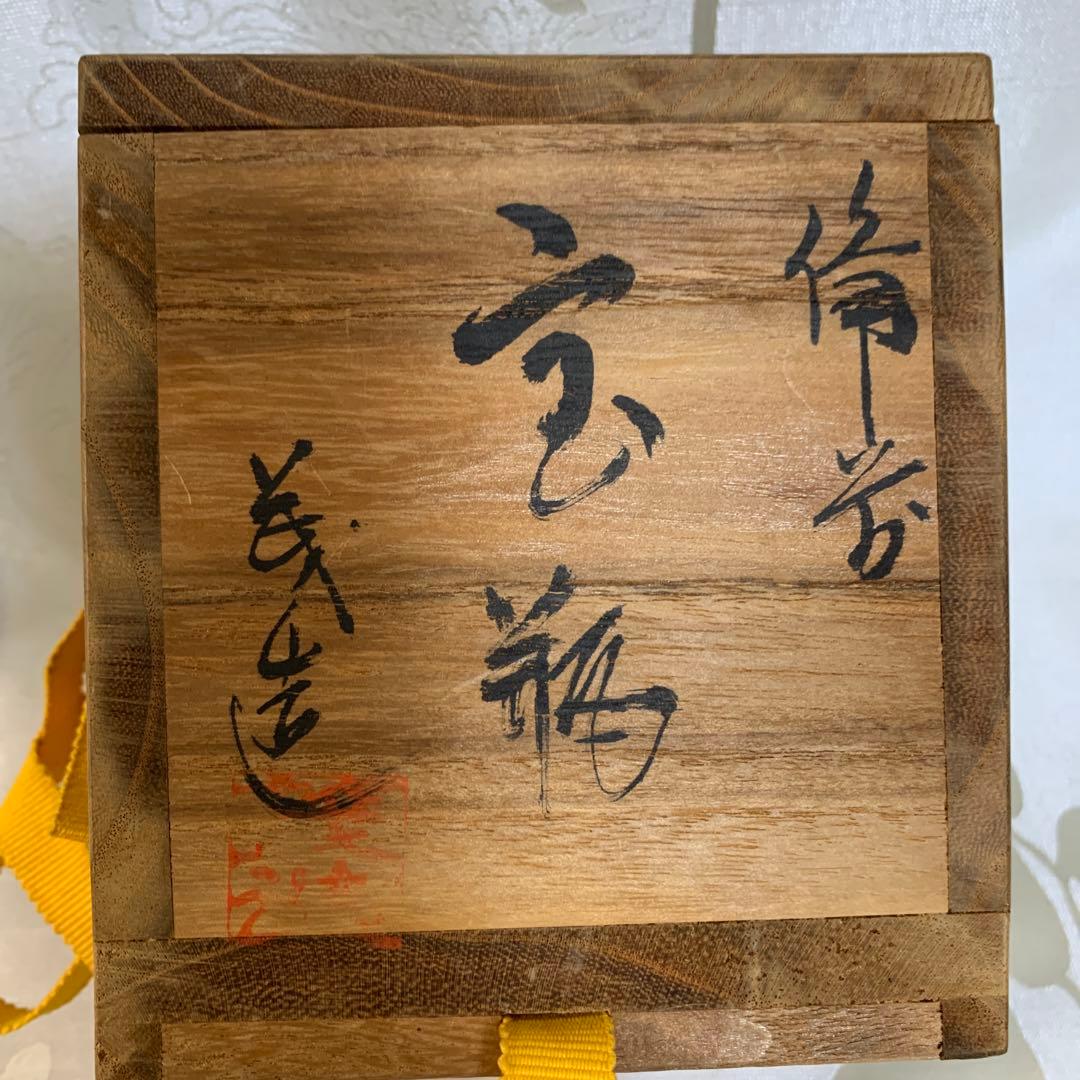 備前
宝瓶
茂造